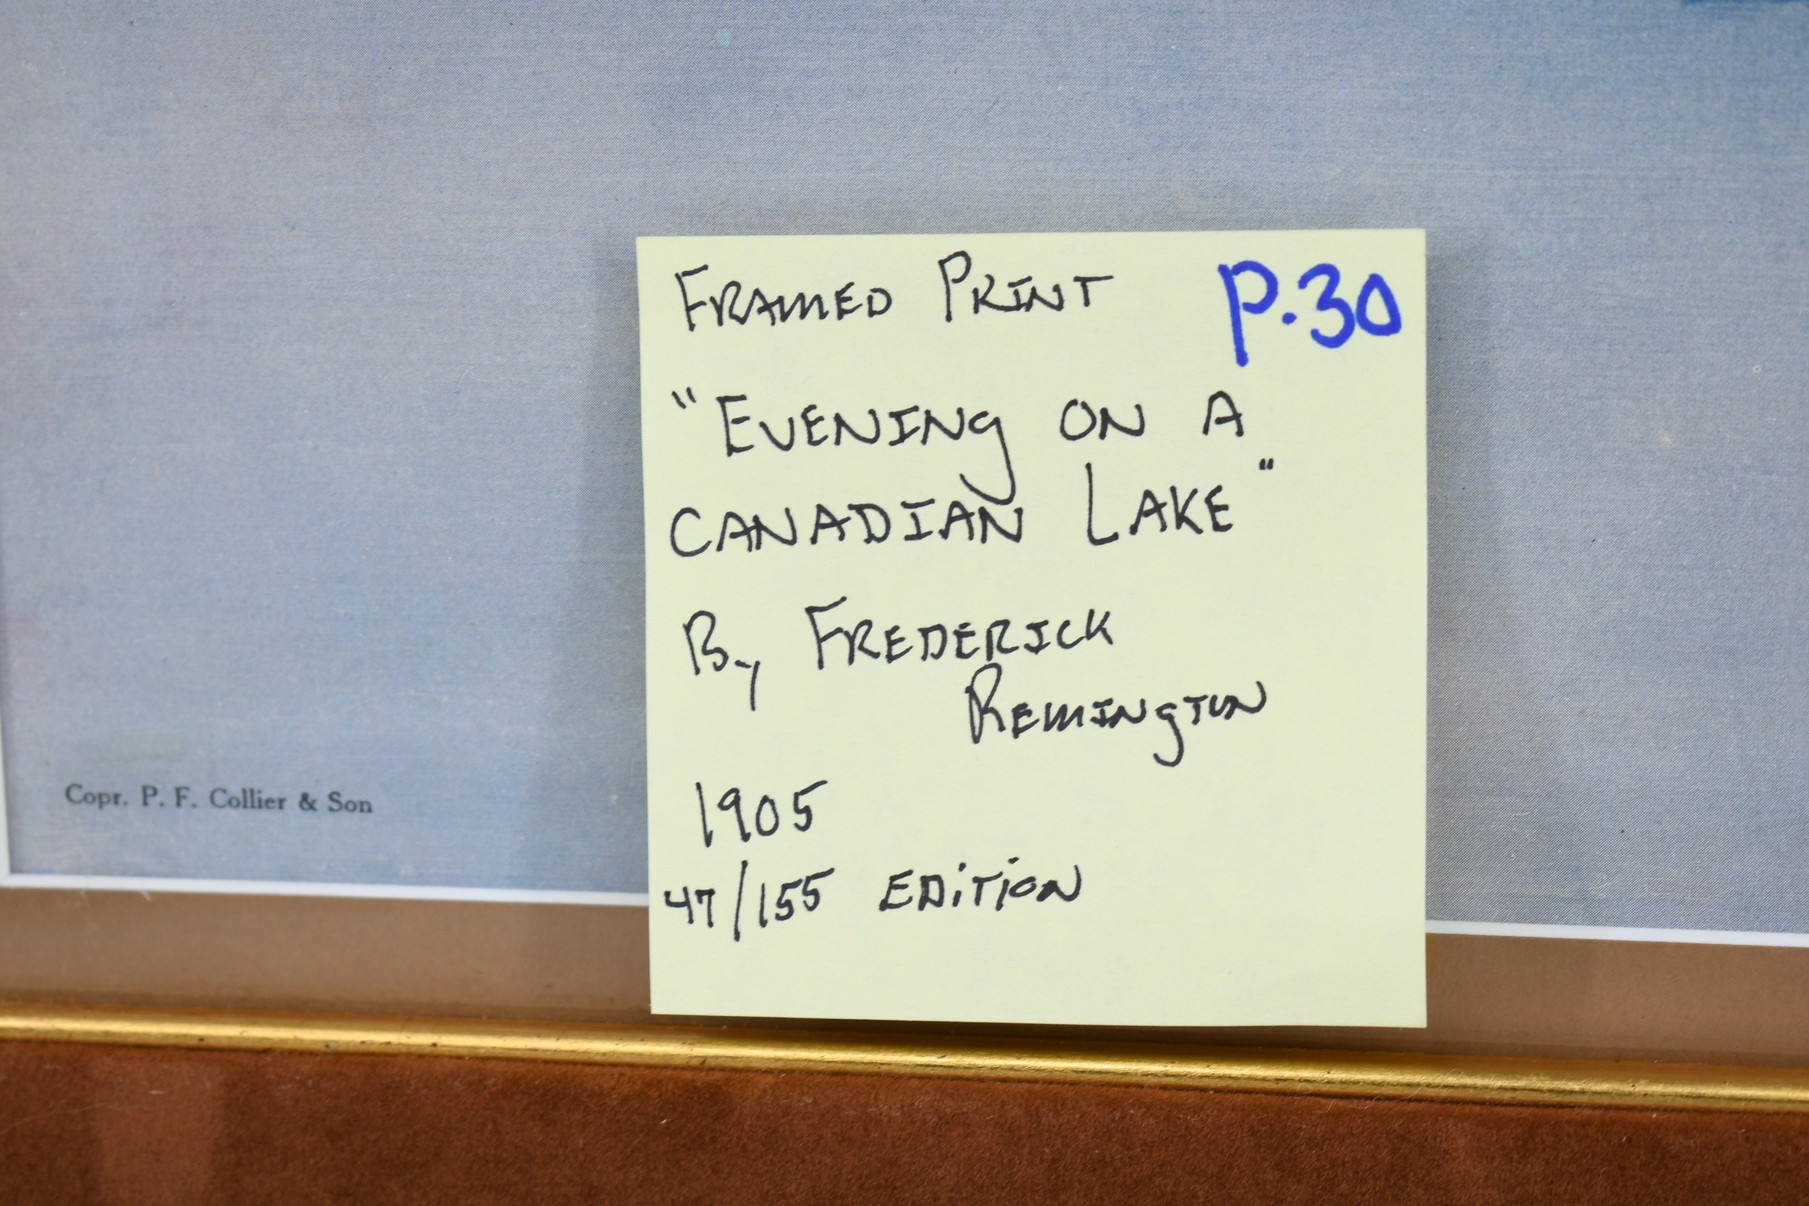 FRAMED PRINT P.30
"EVENING ON A
CANADIAN LAKE"
By FREDERICK
REMINGTON
1905
47/155 EDITION
Copr. P. F. Collier & Son